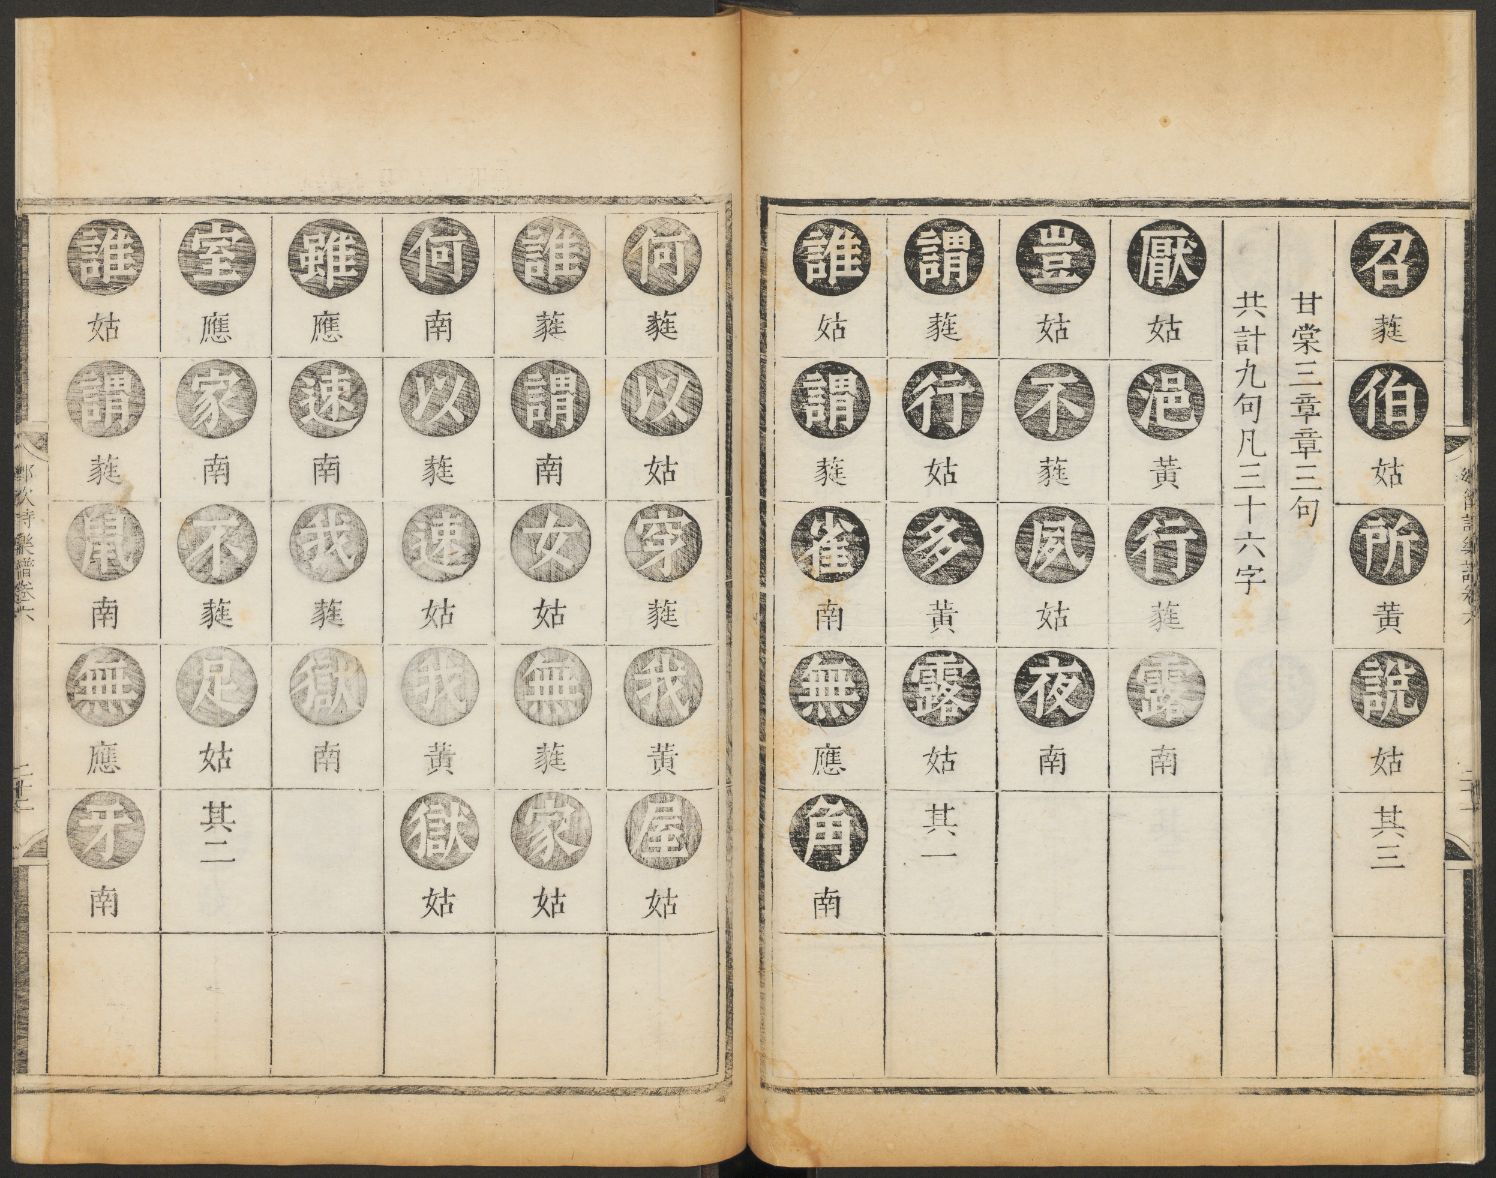 召蕤伯姑所黄說姑其三
甘棠三章章三句
共計九句凡三十六字
厭姑浥黄行蕤露南
豈姑不蕤夙姑夜南
謂蕤行姑多黄露姑其一
誰姑謂蕤雀南無應角南
何蕤以姑穿蕤我黄屋姑
誰蕤謂南女姑無蕤家姑
何南以蕤速姑我黄獄姑
雖應速南我蕤獄南
室應家南不蕤足姑其二
誰姑謂蕤鼠南無應牙南
鄉飲詩樂譜卷六